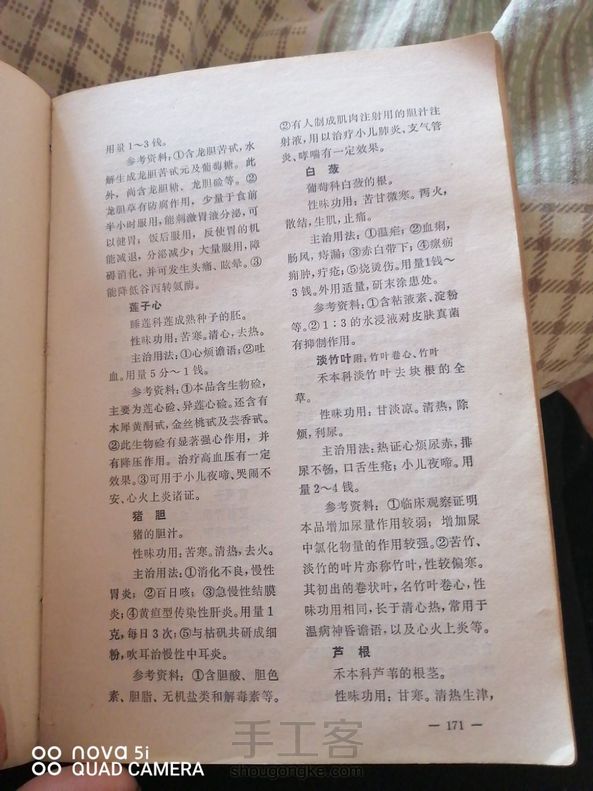 用量1～3钱。
参考资料：①含龙胆苦甙，水
解生成龙胆苦甙元及葡萄糖。此
外，尚含龙胆糖、龙胆硷等。②
龙胆草有防腐作用，少量于食前
半小时服用，能刺激胃液分泌，可
以健胃，饭后服用，反使胃的机
能减退，分泌减少；大量服用，障
碍消化，并可发生头痛、眩晕。③
能降低谷丙转氨酶。
莲子心
睡莲科莲成熟种子的胚。
性味功用：苦寒。清心，去热。
主治用法：①心烦谵语；②吐
血。用量5分～1钱。
参考资料：①本品含生物硷，
主要为莲心硷、异莲心硷。还含有
木犀黄酮甙，金丝桃甙及芸香甙。
②此生物硷有显著强心作用，并
有降压作用。治疗高血压有一定
效果。③可用于小儿夜啼、哭闹不
安、心火上炎诸证。
猪 胆
猪的胆汁。
性味功用：苦寒。清热，去火。
主治用法：①消化不良，慢性
胃炎；②百日咳；③急慢性结膜
炎；④黄疸型传染性肝炎。用量1
克，每日3次；⑤与枯矾共研成细
粉，吹耳治慢性中耳炎。
参考资料：①含胆酸、胆色
素、胆脂、无机盐类和解毒素等。
②有人制成肌肉注射用的胆汁注
射液，用以治疗小儿肺炎、支气管
炎、哮喘有一定效果。
白 蔹
葡萄科白蔹的根。
性味功用：苦甘微寒。泻火，
散结，生肌，止痛。
主治用法：①温疟；②血痢，
肠风，痔漏；③赤白带下；④瘰疬
痈肿，疔疮；⑤烧烫伤。用量1钱～
3钱。外用适量，研末涂患处。
参考资料：①含粘液素、淀粉
等。②1：3的水浸液对皮肤真菌
有抑制作用。
淡竹叶附：竹叶卷心、竹叶
禾本科淡竹叶去块根的全
草。
性味功用：甘淡凉。清热，除
烦，利尿。
主治用法：热证心烦尿赤，排
尿不畅，口舌生疮；小儿夜啼。用
量2～4钱。
参考资料：①临床观察证明
本品增加尿量作用较弱；增加尿
中氯化物量的作用较强。②苦竹、
淡竹的叶片亦称竹叶，性较偏寒。
其初出的卷状叶，名竹叶卷心，性
味功用相同，长于清心热，常用于
温病神昏谵语，以及心火上炎等。
芦 根
禾本科芦苇的根茎。
性味功用：甘寒。清热生津，
— 171 —
nova 5i
QUAD CAMERA
手工客
shougongke.com